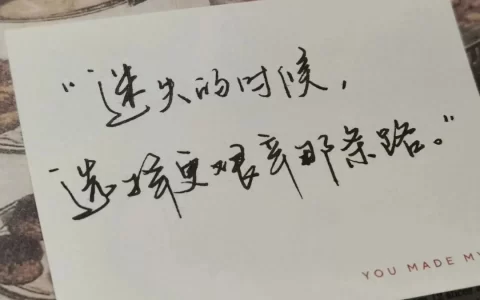 “迷失的时候,
选择更艰辛那条路。”
YOU MADE MY